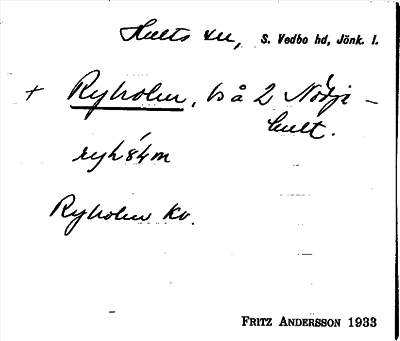 Hults sn, S. Vedbo hd, Jönk. l.
+ Ryholm, bs å 2 Nödje-
hult.
Ryholm Kv.
FRITZ ANDERSSON 1933